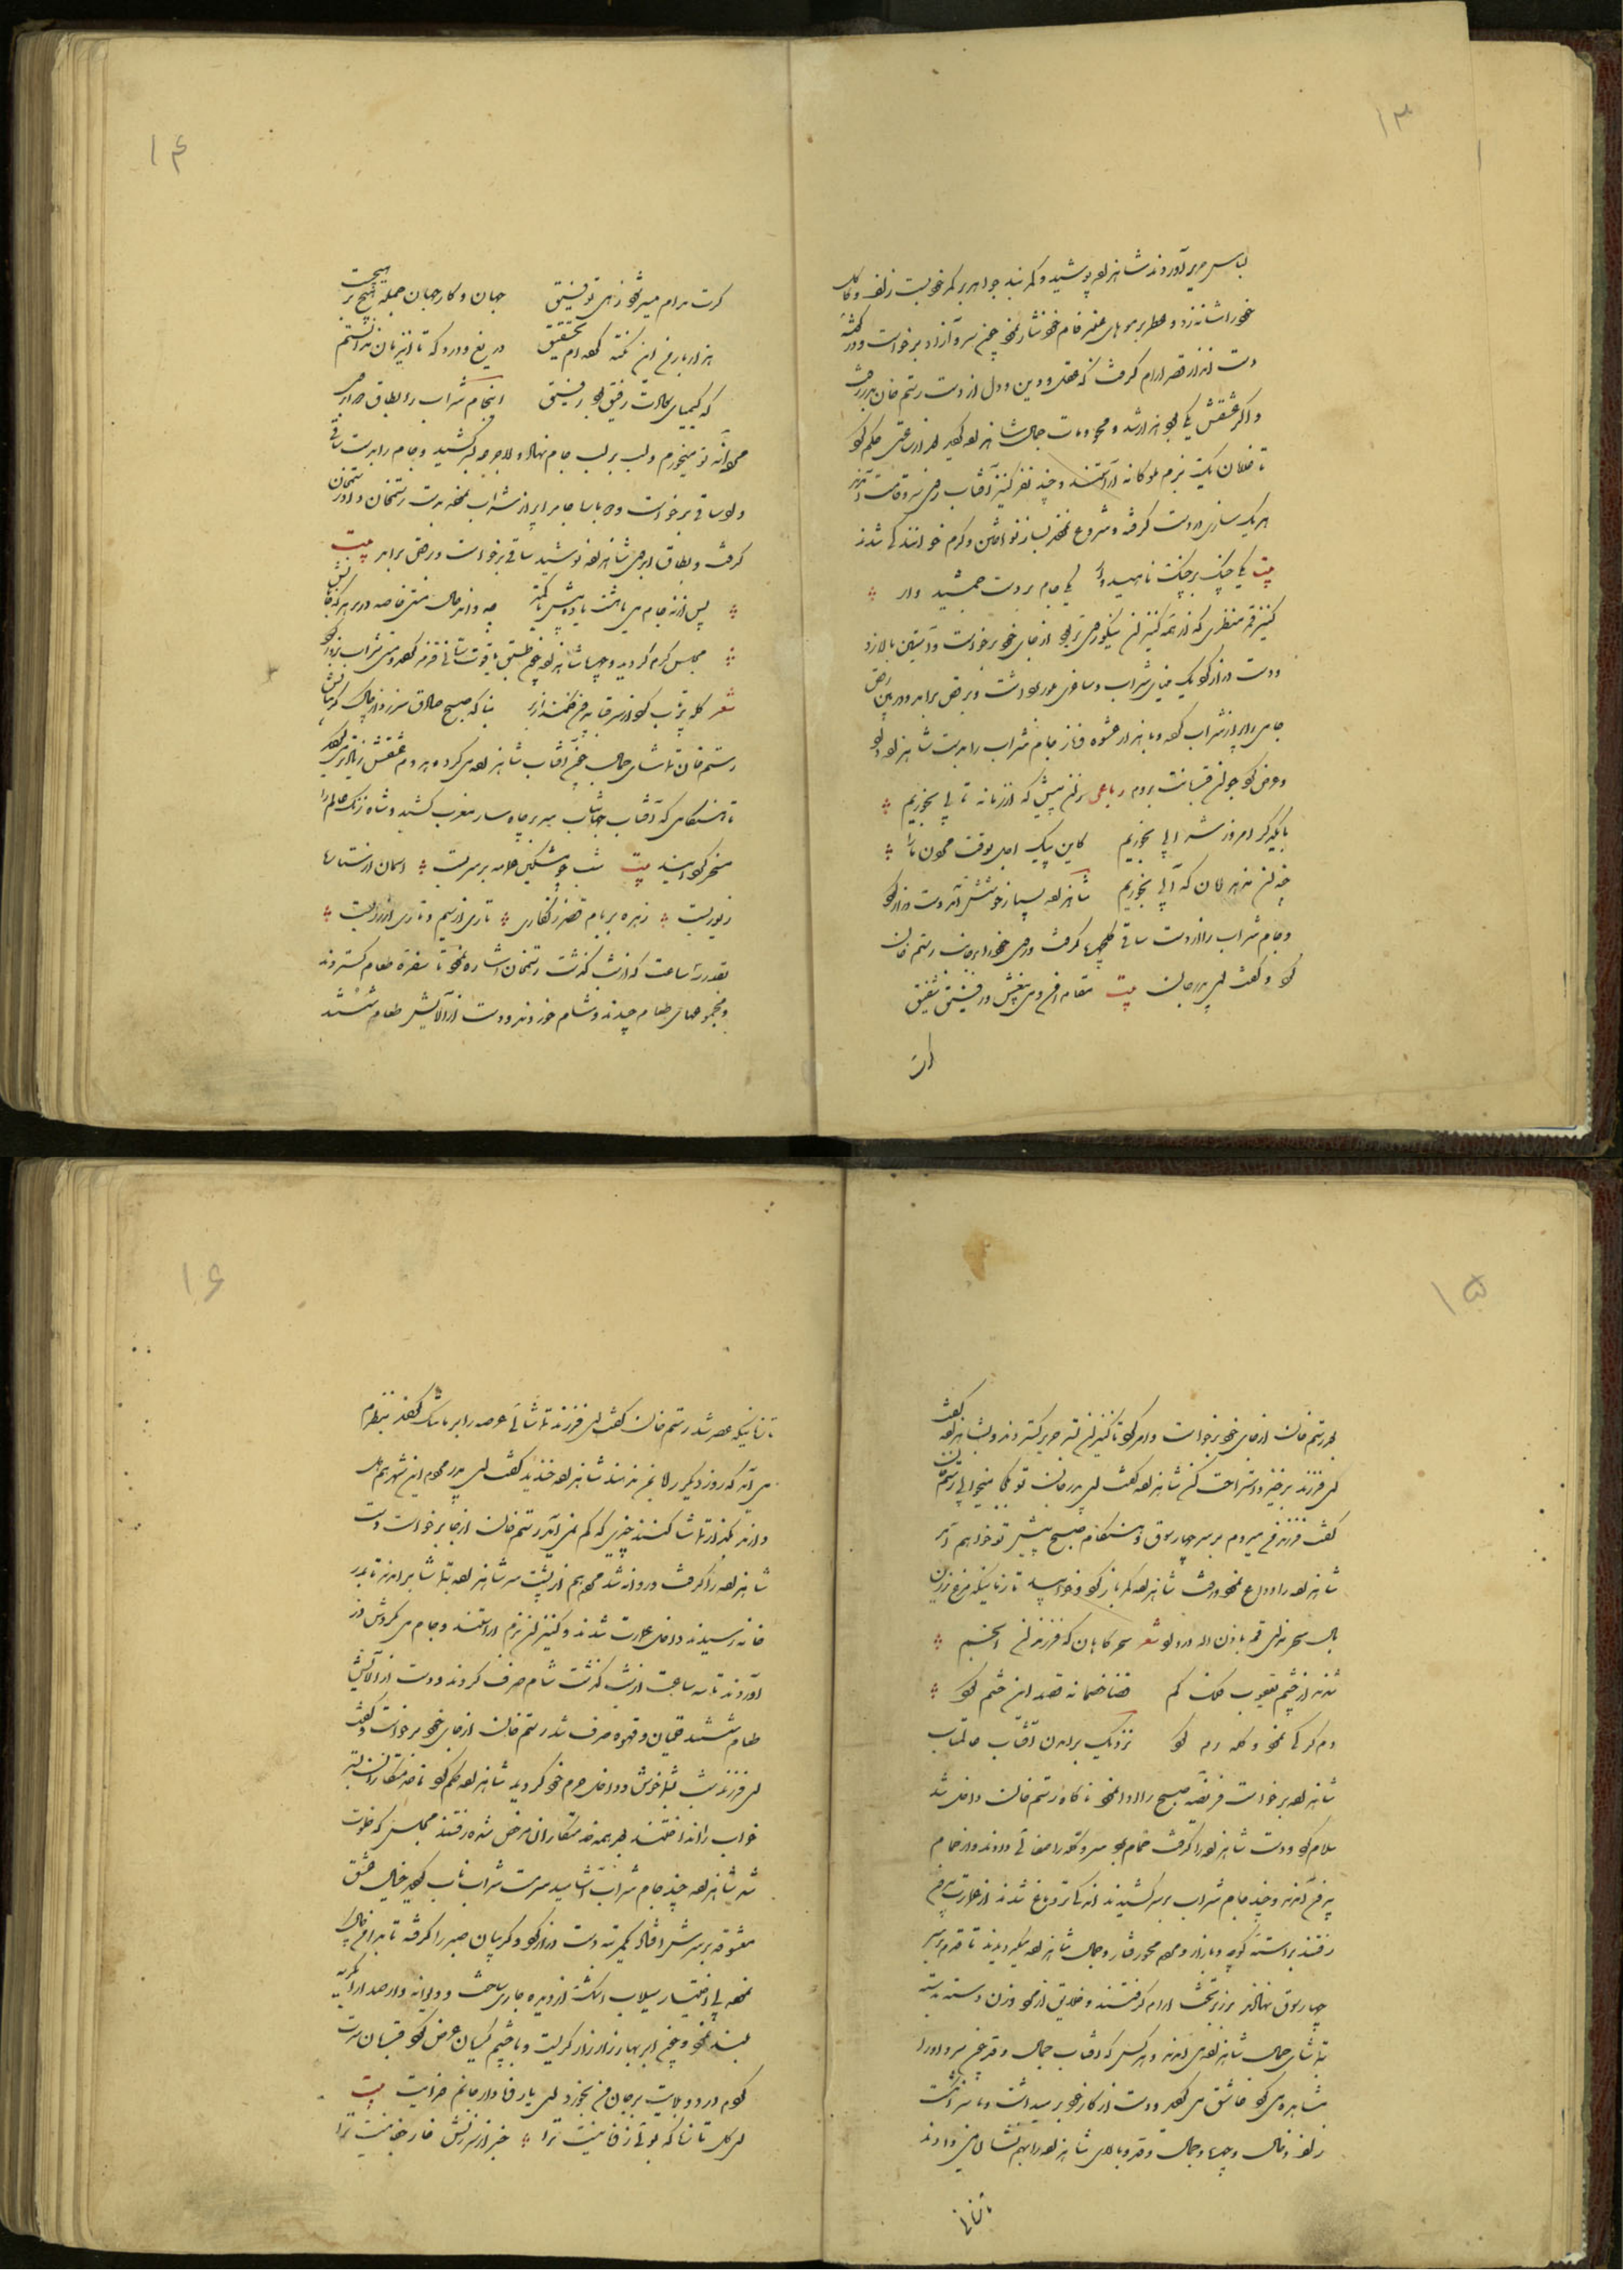 ۱۳
لباس حریر آوردند شاهزاده پوشید و کمربند جواهر بر کمر خود بست زلف و کاکل
خود را شانه زد و عطر بر موهای عنبرفام خود نثار نمود چون سرو آزاد برخواست و در
دست قرار آرام گرفت که عقل و دین و دل از دست رستم خان بدر رفت
و اگر عشقش یکی بود هزار شد و محو و مات جمال شاهزاده گردید بعد از ساعتی حکم کرد
تا غلامان یک بزم ملوکانه آراستند و چند نفر کنیز آفتاب رخی سرو قامت آمدند
هر یک سازی در دست گرفته و شروع نمودند بساز نواختن و گرم خوانندگی شدند
بیت یکی چنگ بر چنگ ناهید وار یکی جام بر دست جمشید وار
کنیز قمر منظری که از همه کنیزان نیکوروی‌تر بود از جای خود برخواست و آستین بالا زد
و دست دراز کرد یک مینای شراب و ساغری بلور برداشت و برقص برآمد و در بین رقص
جامی را پر از شراب کرد و با هزار عشوه و ناز جام شراب را بدست شاهزاده داد
و عرض کرد جوان قربانت بروم رباعی زان پیش که از زمانه تابی بخوریم
با یکدگر امروز شرابی بخوریم کاین پیک اجل بوقت رفتن ما را
چندان ندهد امان که آبی بخوریم شاهزاده بسیار خوشش آمد دست دراز کرد
و جام شراب را از دست ساقی گلچهره گرفت و روی خود را بجانب رستم خان
کرد و گفت ای پدر جان بیت مقام امن و می بیغش و رفیق شفیق
گرت
۱۴
گرت مدام میسر شود زهی توفیق جهان و کار جهان جمله هیچ بر هیچست
هزار بار من این نکته کرده‌ام تحقیق دریغ و درد که تا این زمان ندانستم
که کیمیای سعادت رفیق بود رفیق اینجام شراب را بطاق ابروی
مردانه تو میخورم و لب بر لب جام نهاد و لاجرعه سر کشید و جام را بدست ساقی
داد ساقی برخواست و جام را پر از شراب نموده بدست رستمخان داد رستمخان
گرفت و بطاق ابروی شاهزاده نوشید ساقی برخواست و برقص برآمد بیت
پس از نه جام می با هشت یا ده بیش یا کمتر
مجلس گرم گردید و چهره شاهزاده چون عقیق یاقوت رمانی قرمز گردید و مستی شراب
شعر کله پرتاب کرد از سر قبا بر من
رستم خان تماشای جمال چون آفتاب شاهزاده می‌کرد و هر دم عشقش زیادتر می‌گردید
تا هنگامی که آفتاب جهانتاب سر بر چاهسار مغرب کشید و شاه زنگ عالم را
مسخر گردانید بیت شب چو مشکین عمامه بر سر بست آسمان از ستارها
زیور بست زهره بر بام قصر زنگاری تاری از سیم و تاری از زر بست
بقدر سه ساعت که از شب گذشت رستمخان اشاره نمود تا سفره طعام گستردند
و مجموعهای طعام چیدند و شام خوردند و دست از آلایش طعام شستند
۱۵
بعد رستم خان از جای خود برخواست و امر کرد تا کنیزان بستر حریر گستردند و بشاهزاده گفت
ای فرزند برخیز و استراحت کن شاهزاده گفت ای پدر جان تو کجا میخوابی رستم خان
گفت فرزند من میروم بر سر چهارسوق و هنگام صبح پیش تو خواهم آمد
شاهزاده را وداع نمود و رفت شاهزاده کمر باز کرد و خوابید تا زمانیکه مرغ زرین
بال سحر
شعر سحر گاهان که فرزندان انجم
شدند از چشم یعقوب فلک گم
دم گرگ
نزدیک برآمدن آفتاب عالمتاب
شاهزاده برخواست فریضه صبح را ادا نمود ناگاه رستم خان داخل شد
سلام کرد و دست شاهزاده را گرفت حمام برد سر و کله را صفائی دادند و از حمام
بیرون آمدند و چند جام شراب بر سر کشیدند آنگاه تردماغ شدند از عمارت بیرون
رفتند براسته کوچه و بازار و مردم محو رفتار و جمال شاهزاده میگردیدند تا قدم بر سر
چهارسوق نهادند بر زبر تخت آرام گرفتند و خلایق از مرد و زن دسته دسته
بتماشای جمال شاهزاده می‌آمدند و هر کس که آفتاب جمال و قد چون سرو او را
مشاهده می‌کرد عاشق می‌گردید و دست از کار خود برمیداشت و با سر انگشت
زلف و خال و چهره و جمال و قد و بالای شاهزاده را بهم نشان میدادند
تا زمانی
۱۶
تا زمانیکه عصر شد رستم خان گفت ای فرزند تماشائی عرصه را بر ما تنگ کردند بنظرم
می‌آید که روز دیگر راه بما ندهند شاهزاده خندید گفت ای پدر مردم این شهر هم دل
دارند بگذار تماشا کنند چیزی که کم نمی‌آید رستم خان از جا برخواست دست
شاهزاده را گرفت و روانه شد مردم از پشت سر شاهزاده بتماشا برآمدند تا بدر
خانه رسیدند داخل عمارت شدند و کنیزان بزم آراستند و جام می بگردش در
آوردند تا سه ساعت از شب گذشت شام صرف کردند و دست از آلایش
طعام شستند قلیان و قهوه صرف شد رستم خان از جای خود برخواست و گفت
ای فرزند شب شما خوش و داخل حرم خود گردید شاهزاده حکم کرد تا خدمتکاران بستر
خواب را انداختند بعد همه خدمتکاران مرخص شده رفتند مجلس که خلوت
شد شاهزاده چند جام شراب آشامید سرمست شراب ناب گردید خیال عشق
معشوقه بر سرش افتاد یکمرتبه دست دراز کرد و گریبان صبر را گرفته تا بدامن چاک
نموده بی‌اختیار سیلاب اشک از دیده جاری ساخت و دیوانه‌وار صدا را بگریه
بلند نمود و چون ابر بهار زار زار گریست و با چشم گریان عرض کرد قربان سرت
گردم درد و بلایت بر جان من بخورد ای یار وفادار جانم فدایت بیت
ای گل تا زنا که بوئی ز وفا نیست ترا خبر از سرزنش خار جفا نیست ترا